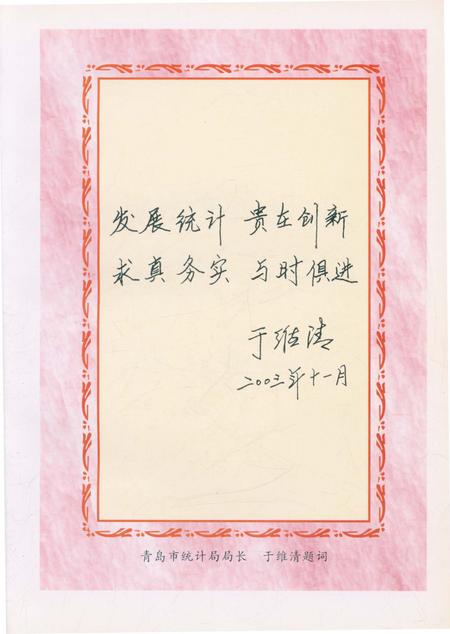 发展统计 贵在创新
求真务实 与时俱进
于维清
二00三年十一月
青岛市统计局局长 于维清题词